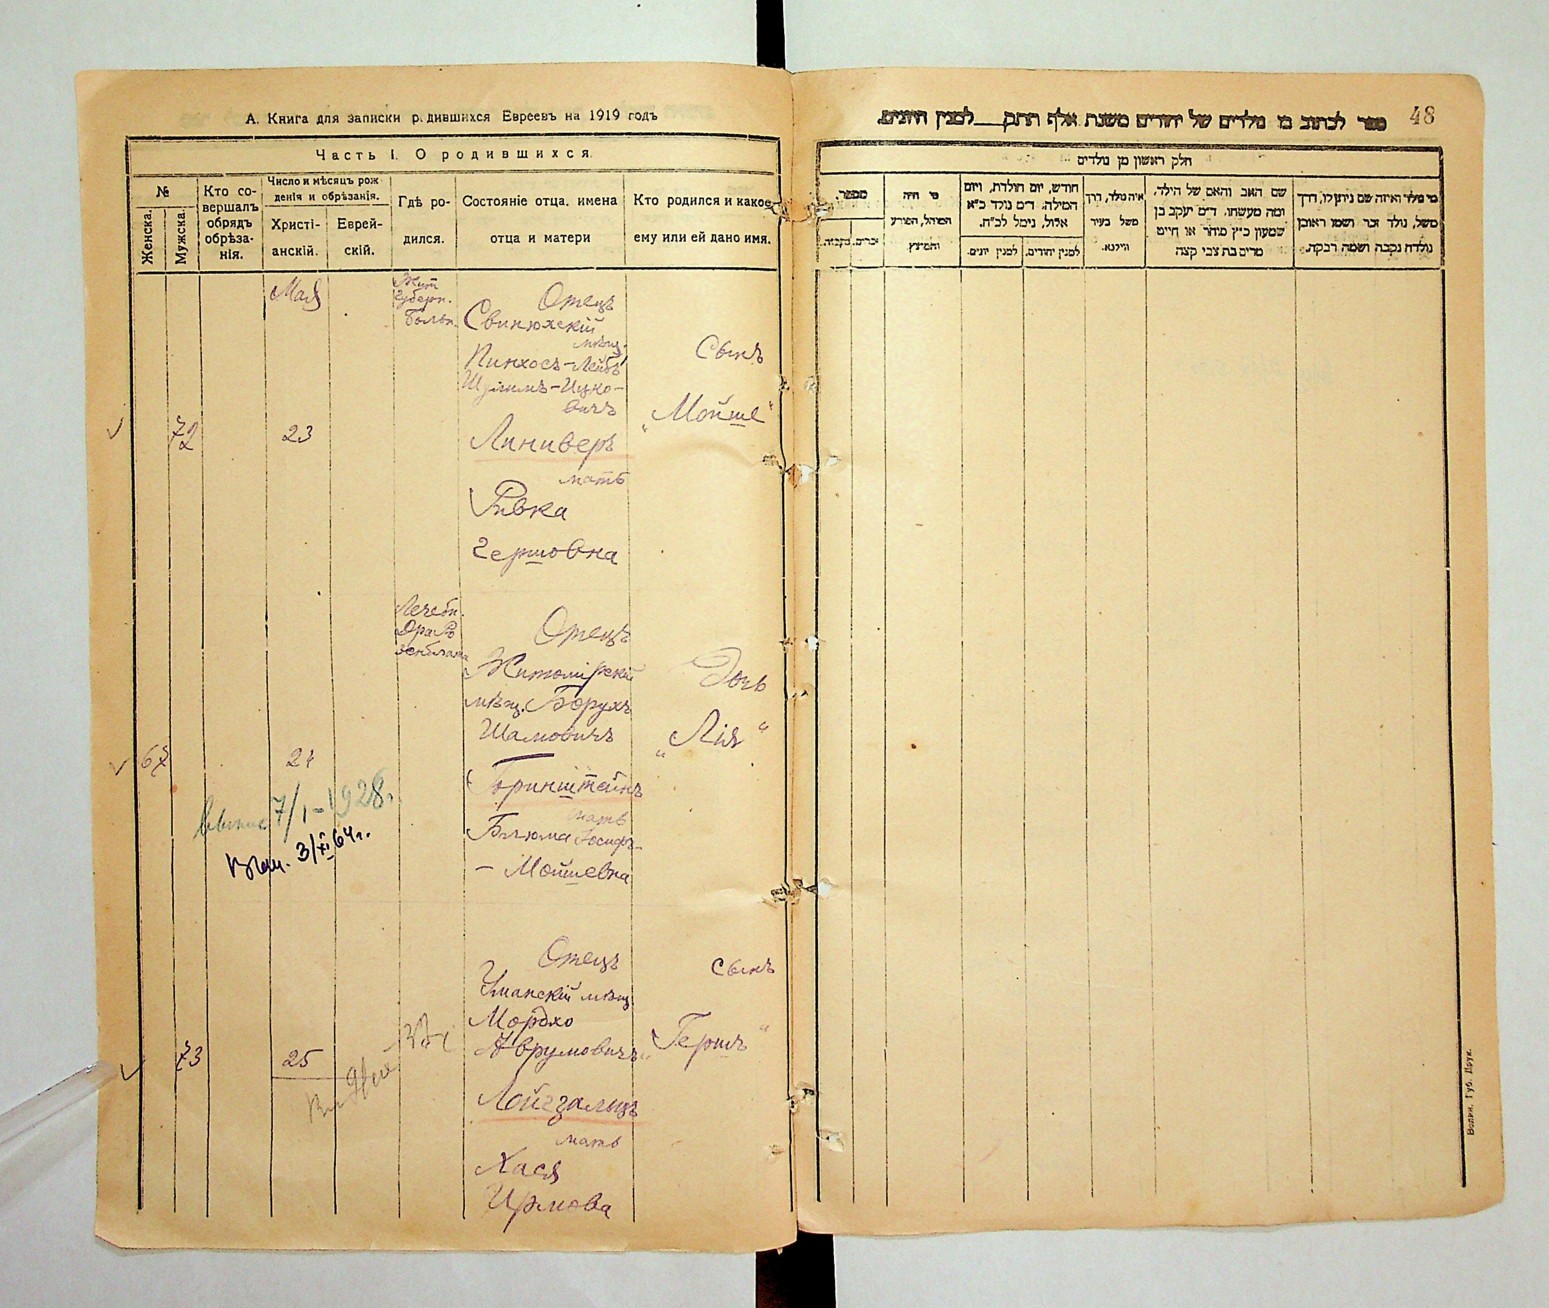 А. Книга для записки родившихся Евреевъ на 1919 годъ
Часть I. О родившихся
№
Женска.
Мужска.
Кто со-
вершалъ
обрядъ
обрѣза-
нія.
Число и мѣсяцъ рож
денія и обрѣзанія.
Христі-
анскій.
Еврей-
скій.
Гдѣ ро-
дился.
Состояніе отца, имена
отца и матери
Кто родился и какое
ему или ей дано имя.
72
Мая
23
Жит
губерн.
больн.
Отецъ
Свинюхскій
мѣщ.
Пинхосъ-Лейбъ
вичъ
Линиверъ
мать
Ривка
Гершовна
Сынъ
„Мойше“
67
24
7/I-1928.
3/XI 64г.
Лечебн.
Отецъ
Житомірскій
мѣщ. Борухъ
Шамовичъ
Бринштейнъ
мать
Блюма Іосифъ-
- Мойшевна
Дочь
„Лія“
73
25
Отецъ
Уманскій мѣщ.
Мордхо
Аврумовичъ
Лойгзальцъ
мать
Хася
Ирмова
сынъ
„Гершъ“
48
ספר לכתוב בו נולדים של יהודים משנת אלף תתק___למנין היונים.
חלק ראשון מן נולדים
מספר.
זכרים.
נקבות.
מי היה
המוהל, הפורע
והמוצץ
חודש, יום הולדת, ויום
המילה. ד״מ נולד כ״א
אלול, נימל לכ״ח.
למנין יונים.
למנין יהודים.
איה נולד, דרך
משל בעיר
ווילנא.
שם האב והאם של הילד,
ומה מעשהו. ד״מ יעקב בן
שמעון כ״ץ סוחר או חייט
מרים בת צבי קצה
מי נולד ואיזה שם ניתן לו, דרך
משל, נולד זכר ושמו ראובן
נולדה נקבה ושמה רבקה.
Волын. Губ. Друк.